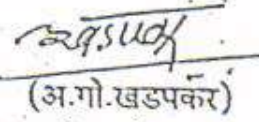 (अ.गो.खडपकर)